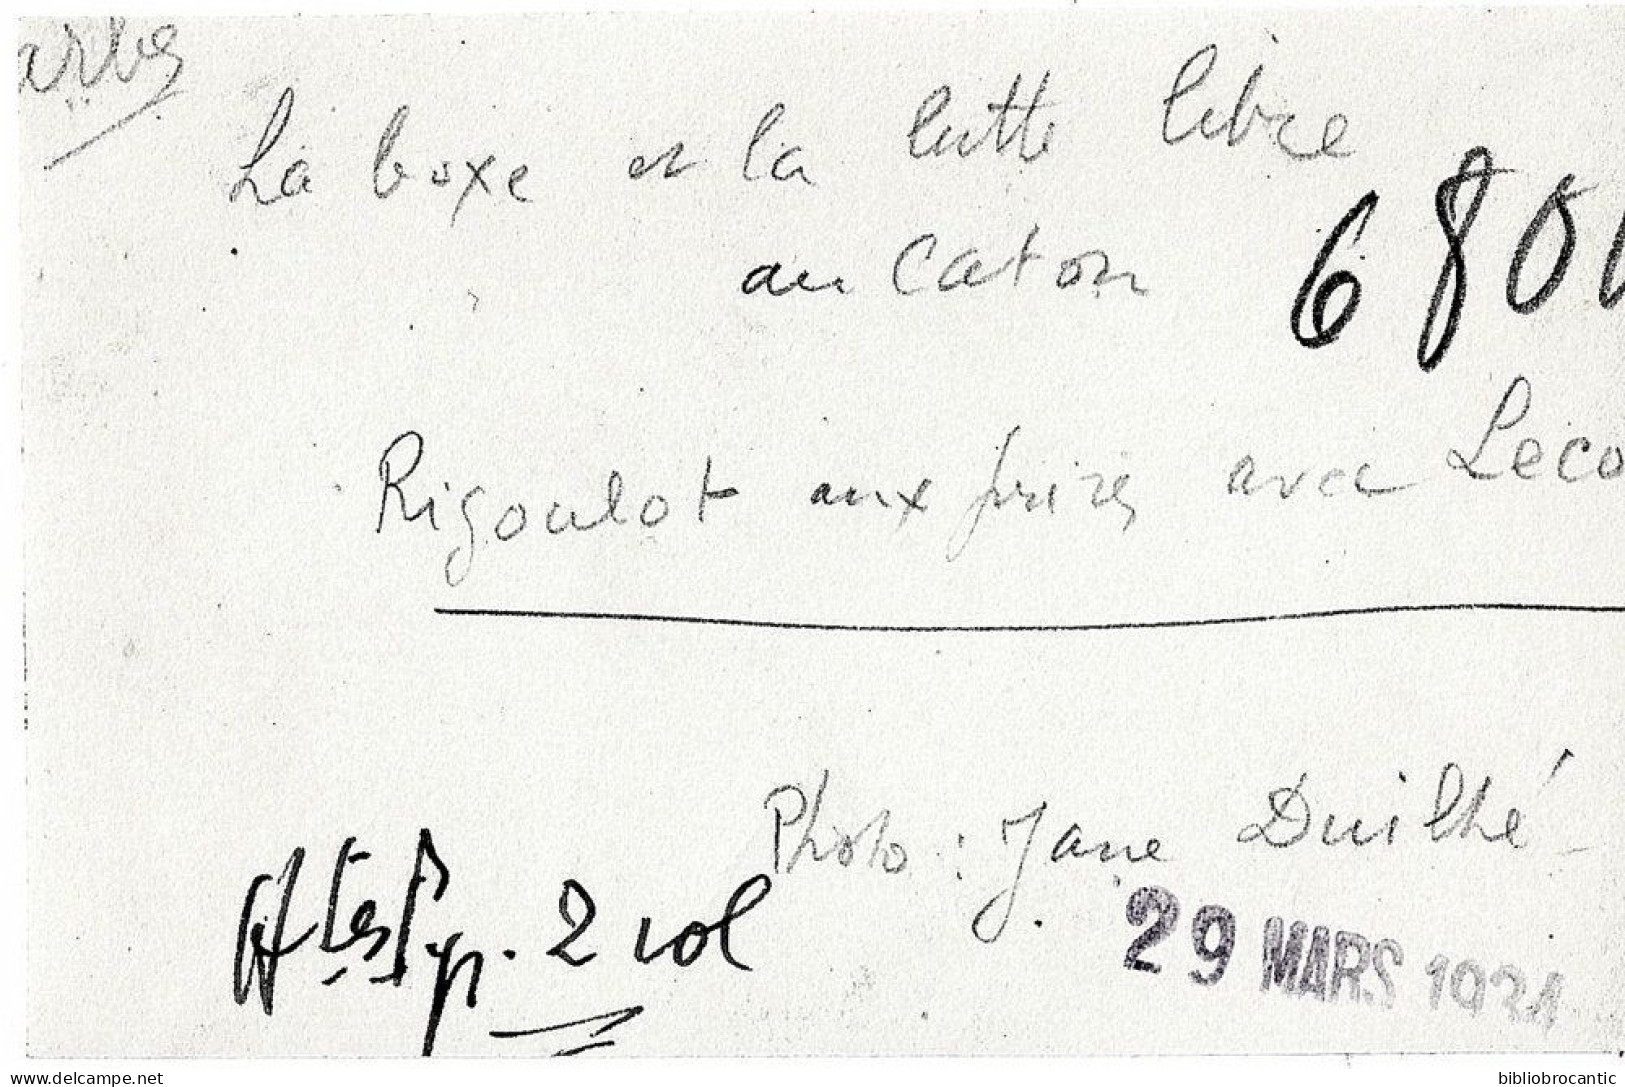 arbes
La boxe et la lutte libre
au Caton
680
Rigoulot aux prises avec Leco
Photo : Jane Duilhé
Htes Pyr. 2 col
29 MARS 1934
www.delcampe.net
bibliobrocantic